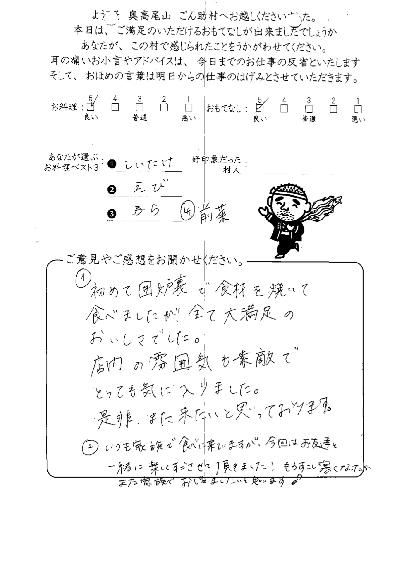 ようこそ 奥高尾山 ごん助村へお越しくださいました。
本日は、ご満足のいただけるおもてなしが出来ましたでしょうか
あなたが、この村で感じられたことをうかがわせてください。
耳の痛いお小言やアドバイスは、今日までのお仕事の反省といたします
そして、おほめの言葉は明日からの仕事のはげみとさせていただきます。
お料理: 5 4 3 2 1 おもてなし: 5 4 3 2 1
良い 普通 悪い 良い 普通 悪い
あなたが選ぶ
お料理ベスト3
❶ しいたけ
❷ えび
❸ ④前菜
好印象だった
村人
ご意見やご感想をお聞かせください。
① 初めて囲炉裏で食材を焼いて
食べましたが全て大満足の
おいしさでした。
店内の雰囲気も素敵で
とっても気に入りました。
是非、また来たいと思っております。
② いつも家族で食べに来ていますが、今回はお友達と
一緒に楽しくすごさせて頂きました!もう少し寒くなったら
また家族で